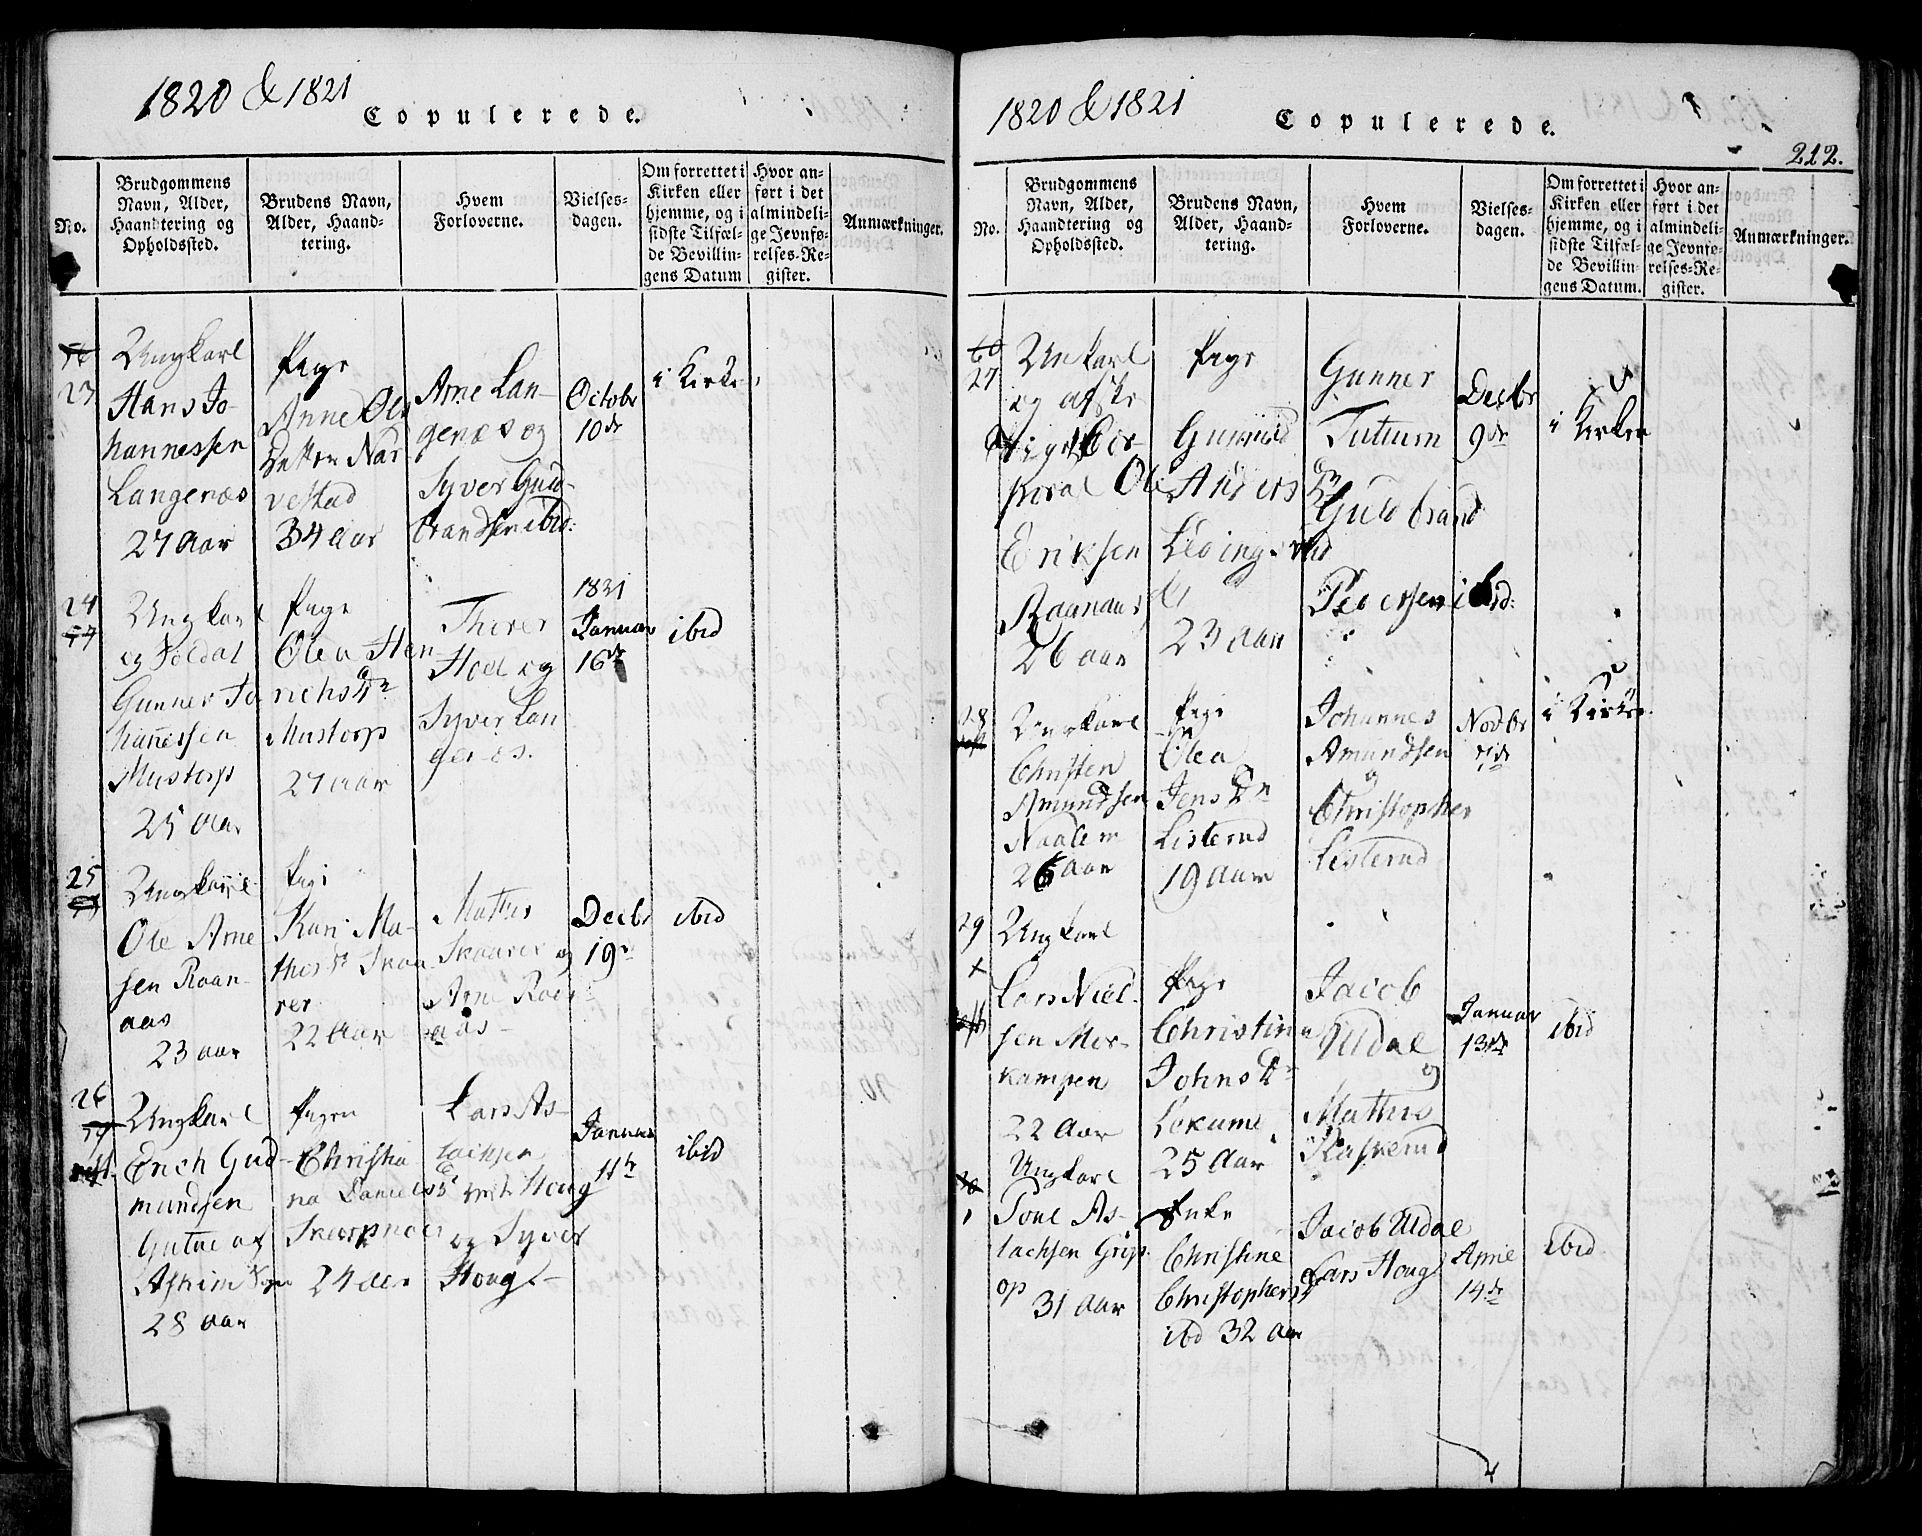 1820 & 1821
Copulerede.
No.
Brudgommens Navn, Alder, Haandtering og Opholdssted.
Brudens Navn, Alder, Haandtering.
Hvem Forloverne.
Vielses-dagen.
Om forrettet i Kirken eller hjemme, og i sidste Tilfælde Bevillingens Datum
Hvor anført i det almindelige Jevnførelses-Register.
Anmærkninger.
23
Ungkarl
Hans Jo-
hannessen
Langenæs
27 Aar
Pige
Anne Ols
Datter Nar-
vestad
34 Aar
Arne Lan-
genæs og
Syver Guld-
brandsen ibid:
Octobr
10de
i Kirke
24
Ungkarl
og Soldat
Gunner Jo
hannessen
Mustorp
25 Aar
Pige
Olea Hen-
richsDr
Mustorp
27 aar
Thorer
Hoel og
Syver Lan
genæs.
1821
Januar
16de
ibid
25
Ungkarl
Ole Arne
sen Raan-
aas
23 aar
Pige
Kari Ma-
thisDr Skaa-
rer
22 Aar
Mathis
Skaarer og
Arne Raan-
aas
Decbr
19de
ibid
26
Ungkarl
Erich Gud-
mundsen
Gutue af
Askim
28 aar
Pigen
Christia
na Daniels Dr
Skorpnæs
24 aar
Lars As-
lachsen
Houg
og Syver
Houg
Januar
11te
ibid
1820 & 1821
Copulerede.
212.
No.
Brudgommens Navn, Alder, Haandtering og Opholdssted.
Brudens Navn, Alder, Haandtering.
Hvem Forloverne.
Vielses-dagen.
Om forrettet i Kirken eller hjemme, og i sidste Tilfælde Bevillingens Datum.
Hvor anført i det almindelige Jevnførelses-Register.
Anmærkninger.
27
Unkarl
og afske
Ole
Eriksen
Raanaas
26 aar
Pige
Gunnild
Anders Dr
23 aar
Gunner
Tutum
og
Guldbrand
Pedersen ibid:
Decbr
9de
i Kirken
28
Ungkarl
Christen
Amundsen
Naalem
26 Aar
Pige
Olea
Jens Dr
Listerud
19 Aar
Johannes
Amundsen
og
Christopher
Listerud
Novbr
7de
i Kirke
29
Ungkarl
Lars Niel-
sen Mor-
kampen
22 Aar
Pige
Christine
Johns Dr
Lekume
25 Aar
Jacob
Uldal
og
Mathis
Januar
13de
ibid
1
Ungkarl
Poul As-
lachsen Grip-
op
31 Aar
Enke
Christine
ChristophersDr
ibd 32 Aar
Jacob Uldal
Lars Houg
April
14de
ibid